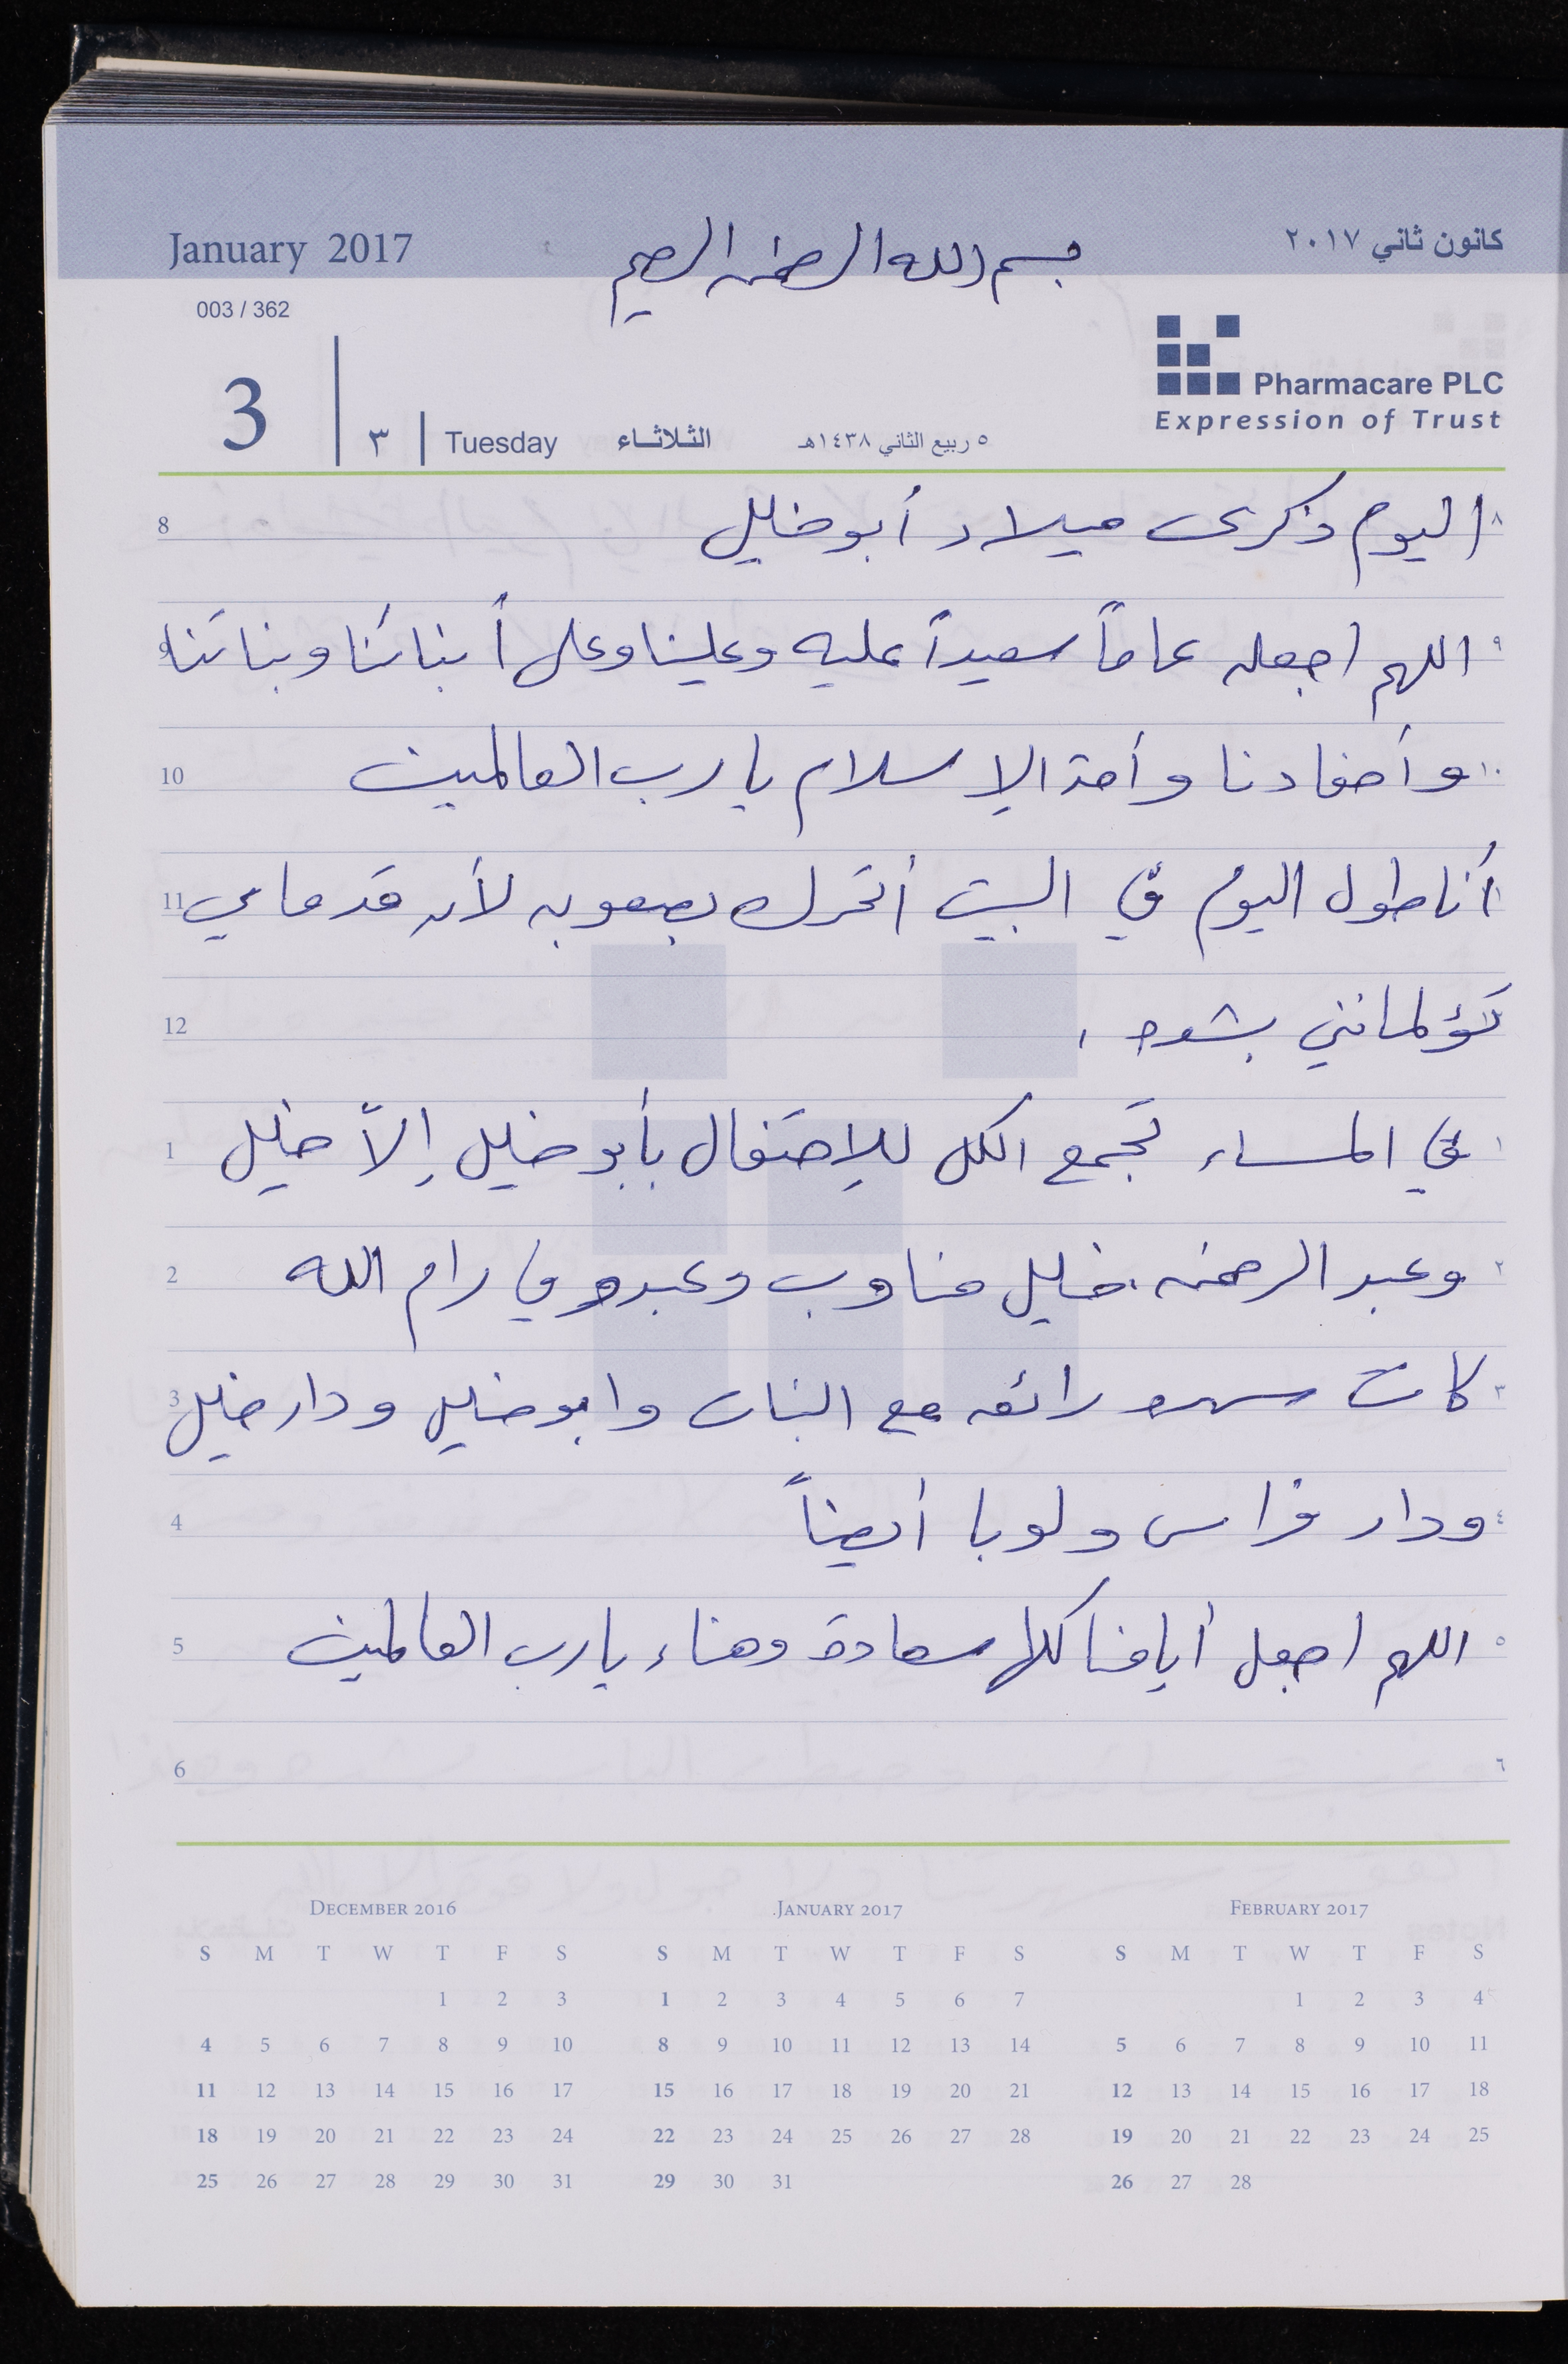 January 2017
بسم الله الرحمن الرحيم
كانون ثاني ٢٠١٧
003 / 362
Pharmacare PLC
Expression of Trust
3 ٣ Tuesday الثلاثاء ٥ ربيع الثاني ١٤٣٨هـ
8 اليوم ذكرى ميلاد أبو خليل ٨
9 اللهم اجعله عاماً سعيداً عليه وعلينا وعلى أبنائنا وبناتنا ٩
10 وأحفادنا وأمة الإسلام يا رب العالمين ١٠
11 أنا طول اليوم في البيت أتحرك بصعوبه لأن قدماي ١١
12 تؤلمانني بشده .
1 في المساء تجمع الكل للإحتفال بأبو خليل إلاّ خليل ١
2 وعبد الرحمن . خليل مناوب وعبدو في رام الله ٢
3 كانت سهره رائعه مع البنات وابو خليل ودار خليل ٣
4 ودار فراس ولوبا أيضاً ٤
5 اللهم اجعل أيامنا كلها سعادة وهناء يا رب العالمين ٥
6 ٦
DECEMBER 2016
S M T W T F S
1 2 3
4 5 6 7 8 9 10
11 12 13 14 15 16 17
18 19 20 21 22 23 24
25 26 27 28 29 30 31
JANUARY 2017
S M T W T F S
1 2 3 4 5 6 7
8 9 10 11 12 13 14
15 16 17 18 19 20 21
22 23 24 25 26 27 28
29 30 31
FEBRUARY 2017
S M T W T F S
1 2 3 4
5 6 7 8 9 10 11
12 13 14 15 16 17 18
19 20 21 22 23 24 25
26 27 28